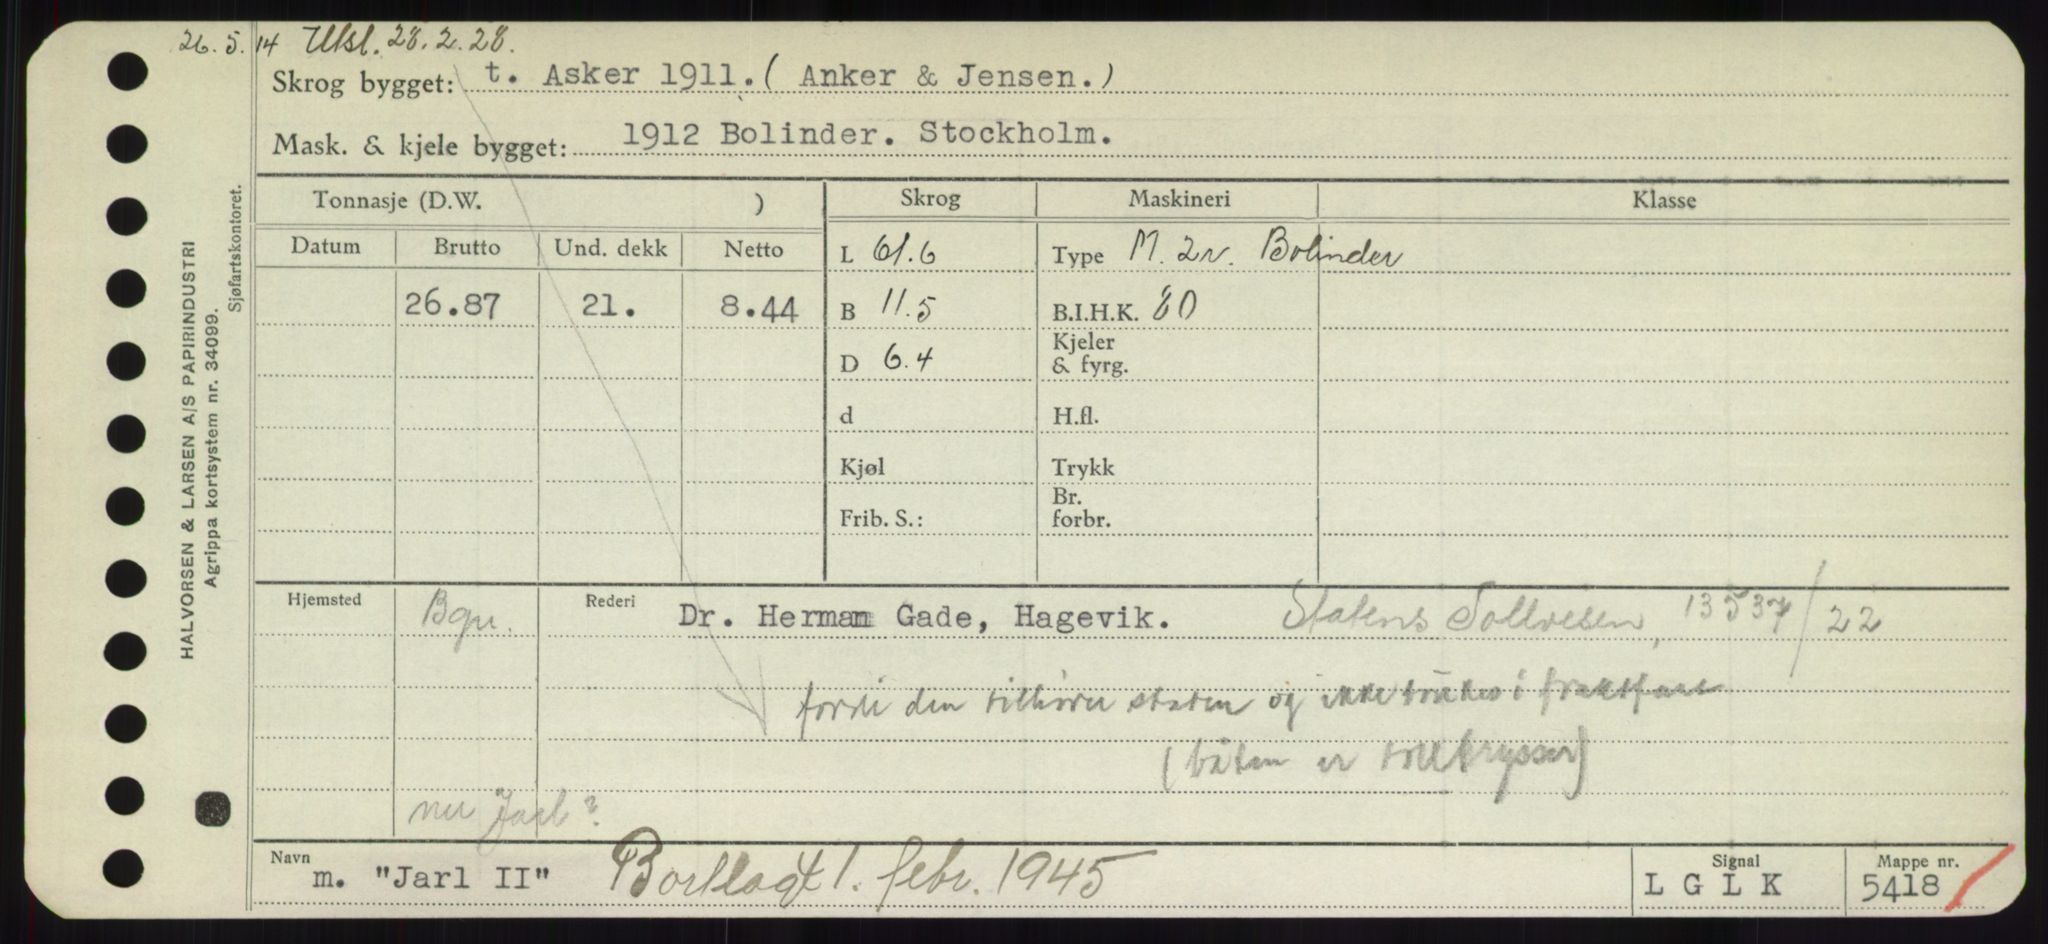 26. 5. 14 Utsl. 28. 2. 28.
Skrog bygget: t. Asker 1911. ( Anker & Jensen.)
Mask. & kjele bygget: 1912 Bolinder. Stockholm.
Tonnasje (D.W. ) Skrog Maskineri Klasse
Datum Brutto Und. dekk Netto L 61.6 Type M. 2v. Bolinder
26.87 21. 8.44 B 11.5 B.I.H.K. 80
D 6.4 Kjeler & fyrg.
d H.fl.
Kjøl Trykk
Frib. S.: Br. forbr.
Hjemsted Bgn. Rederi Dr. Herman Gade, Hagevik. Statens Tollvesen, 13537/22
fordi den tilhører staten og ikke brukes i fraktfart
(båten er tollkrysser)
nu Jarl?
Navn m. "Jarl II" Bortlagt 1. febr. 1945 Signal L G L K Mappe nr. 5418
HALVORSEN & LARSEN A/S PAPIRINDUSTRI
Agrippa kortsystem nr. 34099.
Sjøfartskontoret.